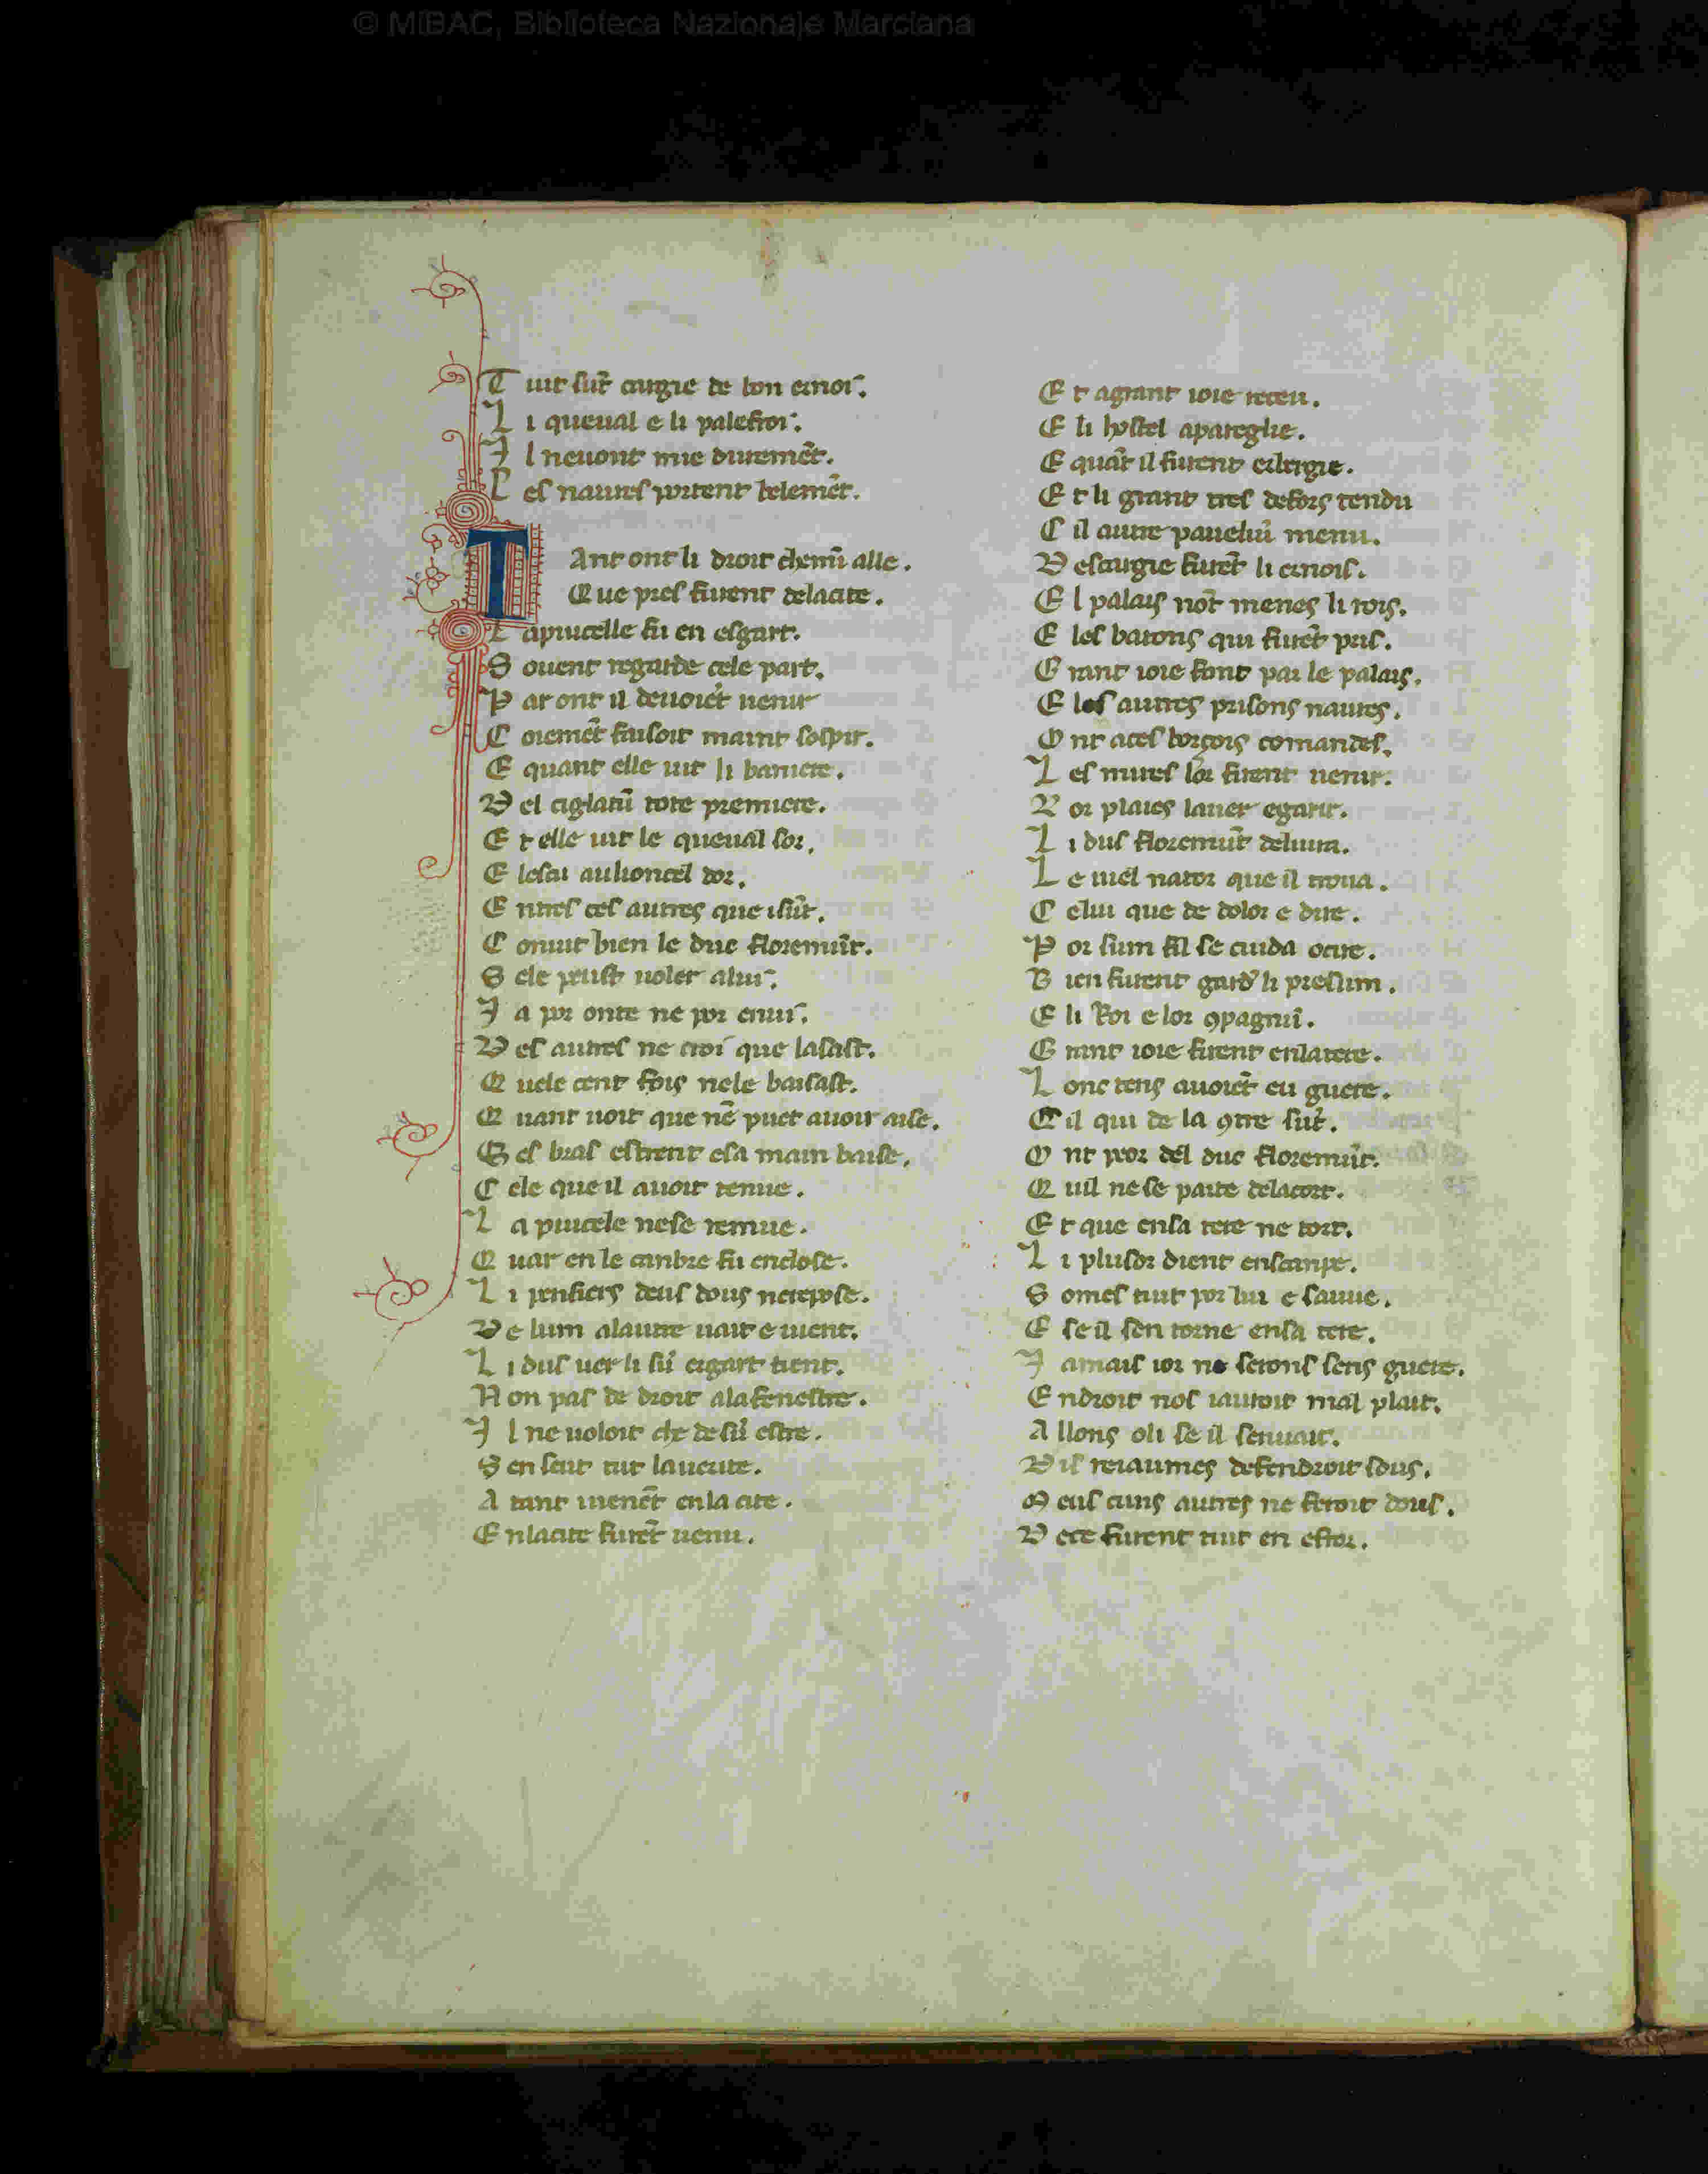 © MiBAC, Biblioteca Nazionale Marciana
T uit sũt cargie de bon arnois.
L i queual e li palefroi.
I l neuont mie duremẽt.
L es naures portent belemẽt.
T Ant ont li droit chemĩ alle.
Que pres furent delacite.
L apiucelle fu en esgart.
S ouent regarde cele part.
P ar ont il deuoiẽt uenir
C oiemẽt faisoit maint sospir.
E quant elle uit li baniere.
D el aiglatũ tote premiere.
E t elle uit le queual sor.
E lescu aulioncel dor.
E ntres ces autres que isũt.
C onuit bien le duc floremũt.
S ele peust uoler alui.
I a por onte ne por enui.
D es autres ne croi que lasast.
Q uele cent fois nele baisast.
Q uant uoit que nẽ puet auoir aise.
S es bras estrent esa main baise.
C ele que il auoit tenue.
L a piucele nese remue.
Q uar en le canbre fu enclose.
L i penfiers deus dous nerepose.
D e lum alautre uait e uient.
L i dus uer li sũ esgart tient.
N on pas de droit alafenestre.
I l ne uoloit che de sũ estre.
S en seut tut lauerite.
A tant uienẽt enla cite.
E nlacite furẽt uenu.
E t agrant ioie receu.
E li hostel apareglie.
E quãt il furent erbergie.
E t li grant tres defors tendu
C il autre pauelũ menu.
D escargie furẽt li arnois.
E l palais nõt menes li rois.
E les barons qui furẽt pris.
G rant ioie font par le palais.
E les autres prisons naures.
O nt aces borçois comandes.
L es mires lor firent uenir.
L or plaies lauer egarir.
L i dus floremũt deliura.
L e miel nator que il troua.
C elui que de dolor e dire.
P or sum fil se cuida ocire.
B ien furent gard' li presum.
E li Roi e lor 9pagniũ.
G rant ioie firent enlatere.
L onc tens auoiẽt eu guere.
C il qui de la 9tre sũt.
O nt peor del duc floremũt.
Q uil nese parte delacort.
E t que ensa tere ne tort.
L i plusor dient enscanpe.
S omes tuit por lui e sauue.
E se il sen torne ensa tere.
I amais ior ne serons sens guere.
E ndroit nos iauroit mal plait.
A llons oli se il senuait.
D is reiaumes defendroit sous.
M eus cuns autres ne feroit dous.
D ece furent tuit en estor.